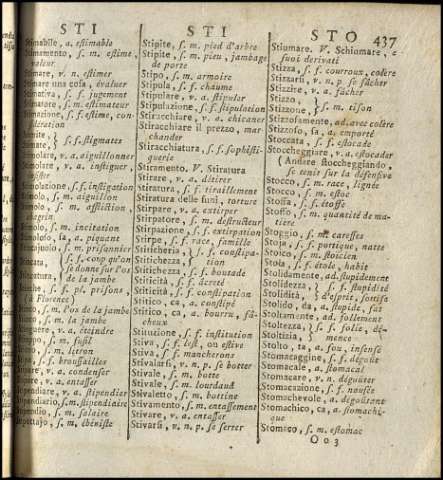 STI
STI
STO
437
Stimabile, a. estimable
Stimamento, s. m. estime,
valeur
Stimare, v. n. estimer
Stimare una cosa, évaluer
Stimativa, s. f. jugement
Stimatore, s. m. estimateur
Stimazione, s. f. estime, con-
sidération
s. f. stigmates
v. a. aiguillonner
v. a. instiguer
s. f. instigation
s. m. aiguillon
s. m. affliction,
chagrin
s. m. incitation
a. piquant
s. m. prisonnier
s. f. coup qu'on
se donne sur l'os
de la jambe
s. f. pl. prisons,
(à Florence)
s. m. l'os de la jambe
s. m. la jambe
v. a. éteindre
s. m. fusil
s. m. litron
s. f. broussailles
v. a. condenser
v. a. entasser
v. a. stipendier
s. m. stipendiaire
s. m. salaire
s. m. ébéniste
Stipite, s. m. pied d'arbre
Stipite, s. m. pieu, jambage
de porte
Stipo, s. m. armoire
Stipula, s. f. chaume
Stipulare, v. a. stipular
Stipulazione, s. f. stipulation
Stiracchiare, v. a. chicaner
Stiracchiare il prezzo, mar-
chander
Stiracchiatura, s. f. sophisti-
querie
Stiramento. V. Stiratura
Stirare, v. a. détirer
Stiratura, s. f. tiraillement
Stiratura delle funi, torture
Stirpare, v. a. extirper
Stirpatore, s. m. destructeur
Stirpazione, s. f. extirpation
Stirpe, s. f. race, famille
Stiticheria, } s. f. constipa-
Stitichezza, } tion
Stitichezza, s. f. boutade
Stiticità, s. f. âcreté
Stiticità, s. f. constipation
Stitico, ca, a. constipé
Stitico, ca, a. bourru, fâ-
cheux
Stituzione, s. f. institution
Stiva, s. f. lest, on estive
Stiva, s. f. mancherons
Stivalarsi, v. n. p. se botter
Stivale, s. m. botte
Stivale, s. m. lourdaud
Stivaletto, s. m. bottine
Stivamento, s. m. entassement
Stivare, v. a. entasser
Stivarsi, v. n. p. se serrer
Stiumare. V. Schiumare, e
suoi derivati
Stizza, s. f. courroux, colère
Stizzarsi, v. n. p. se fâcher
Stizzire, v. a. fâcher
Stizzo, } s. m. tison
Stizzone, }
Stizzosamente, ad. avec colère
Stizzoso, sa, a. emporté
Stoccata, s. f. estocade
Stoccheggiare, v. a. estocader
(Andare stoccheggiando,
se tenir sur la défensive
Stocco, s. m. race, lignée
Stocco, s. m. estoc
Stoffa, s. f. étoffe
Stoffo, s. m. quantité de ma-
tière
Stoggio, s. m. caresses
Stoja, s. f. portique, natte
Stoico, s. m. stoicien
Stola, s. f. étole, habit
Stolidamente, ad. stupidement
Stolidezza, } s. f. stupidité
Stolidità, } d'esprit, sottise
Stolido, da, a. stupide, sot
Stoltamente, ad. follement
Stoltezza, } s. f. folie, dé-
Stoltizia, } mence
Stolto, ta, a. fou, insensé
Stomacaggine, s. f. dégoût
Stomacale, a. stomacal
Stomacare, v. n. dégoûter
Stomacazione, s. f. nausée
Stomachevole, a. dégoûtant
Stomachico, ca, a. stomachi-
que
Stomaco, s. m. estomac
Oo 3